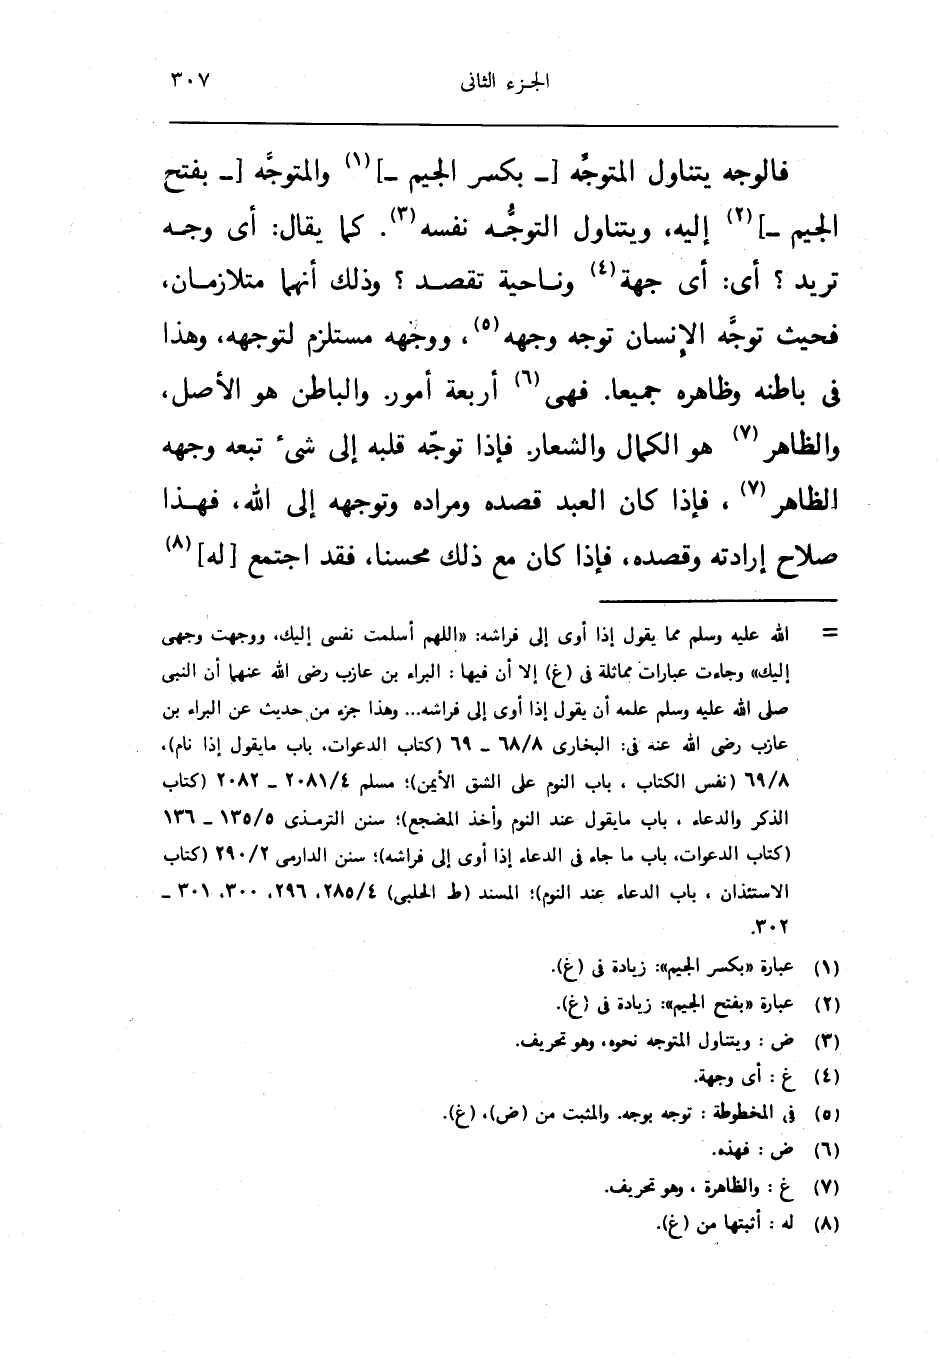 الجزء الثانى ٣٠٧
فالوجه يتناول المتوجِّه [ـ بكسر الجيم ـ](١) والمتوجَّه [ـ بفتح
الجيم ـ](٢) إليه، ويتناول التوجُّه نفسه(٣). كما يقال: أى وجه
تريد ؟ أى: أى جهة(٤) وناحية تقصد ؟ وذلك أنهما متلازمان،
فحيث توجَّه الإنسان توجه وجهه(٥)، ووجهه مستلزم لتوجهه، وهذا
فى باطنه وظاهره جميعا. فهى(٦) أربعة أمور. والباطن هو الأصل،
والظاهر(٧) هو الكمال والشعار. فإذا توجّه قلبه إلى شىء تبعه وجهه
الظاهر(٧) ، فإذا كان العبد قصده ومراده وتوجهه إلى الله، فهذا
صلاح إرادته وقصده، فإذا كان مع ذلك محسنا، فقد اجتمع [له](٨)
= الله عليه وسلم مما يقول إذا أوى إلى فراشه: «اللهم أسلمت نفسى إليك، ووجهت وجهى
إليك» وجاءت عبارات مماثلة فى (غ) إلا أن فيها : البراء بن عازب رضى الله عنهما أن النبى
صلى الله عليه وسلم علمه أن يقول إذا أوى إلى فراشه... وهذا جزء من حديث عن البراء بن
عازب رضى الله عنه فى: البخارى ٦٨/٨ ـ ٦٩ (كتاب الدعوات، باب مايقول إذا نام)،
٦٩/٨ (نفس الكتاب ، باب النوم على الشق الأيمن)؛ مسلم ٢٠٨١/٤ ـ ٢٠٨٢ (كتاب
الذكر والدعاء ، باب مايقول عند النوم وأخذ المضجع)؛ سنن الترمذى ١٣٥/٥ ـ ١٣٦
(كتاب الدعوات، باب ما جاء فى الدعاء إذا أوى إلى فراشه)؛ سنن الدارمى ٢٩٠/٢ (كتاب
الاستئذان ، باب الدعاء عند النوم)؛ المسند (ط الحلبى) ٢٨٥/٤، ٢٩٦، ٣٠٠، ٣٠١ ـ
٣٠٢.
(١) عبارة «بكسر الجيم»: زيادة فى (غ).
(٢) عبارة «بفتح الجيم»: زيادة فى (غ).
(٣) ض : ويتناول المتوجه نحوه، وهو تحريف.
(٤) غ : أى وجهة.
(٥) فى المخطوطة : توجه بوجه. والمثبت من (ض)، (غ).
(٦) ض : فهذه.
(٧) غ : والظاهرة ، وهو تحريف.
(٨) له : أثبتها من (غ).